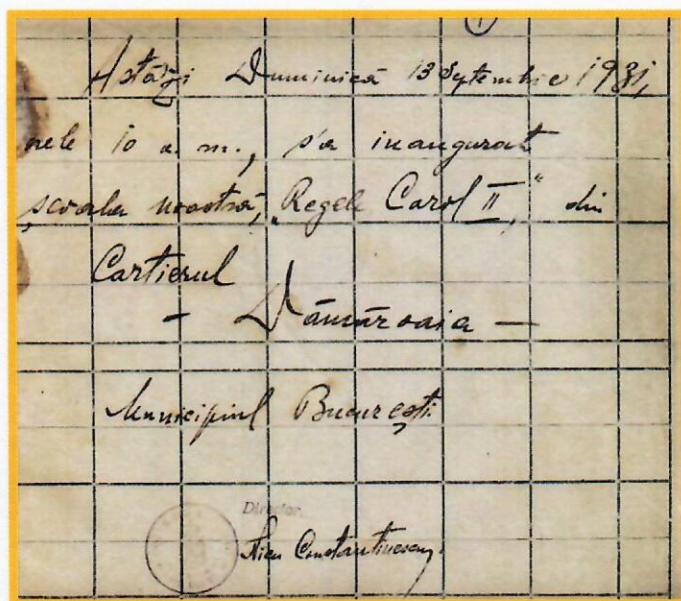 1
Astăzi Duminică 13 Septembrie 1931,
rele 10 a. m., s'a inaugurat
școala noastră, „Regele Carol II," din
Cartierul
- Dămăroaia -
Municipiul București.
Director,
Nicu Constantinescu